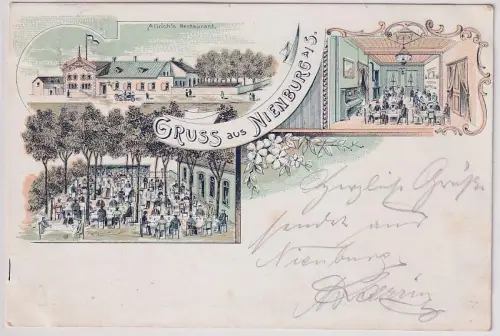 Allrich's Restaurant.
GRUSS aus NIENBURG a/S.
Herzliche Grüße
sendet aus
Nienburg